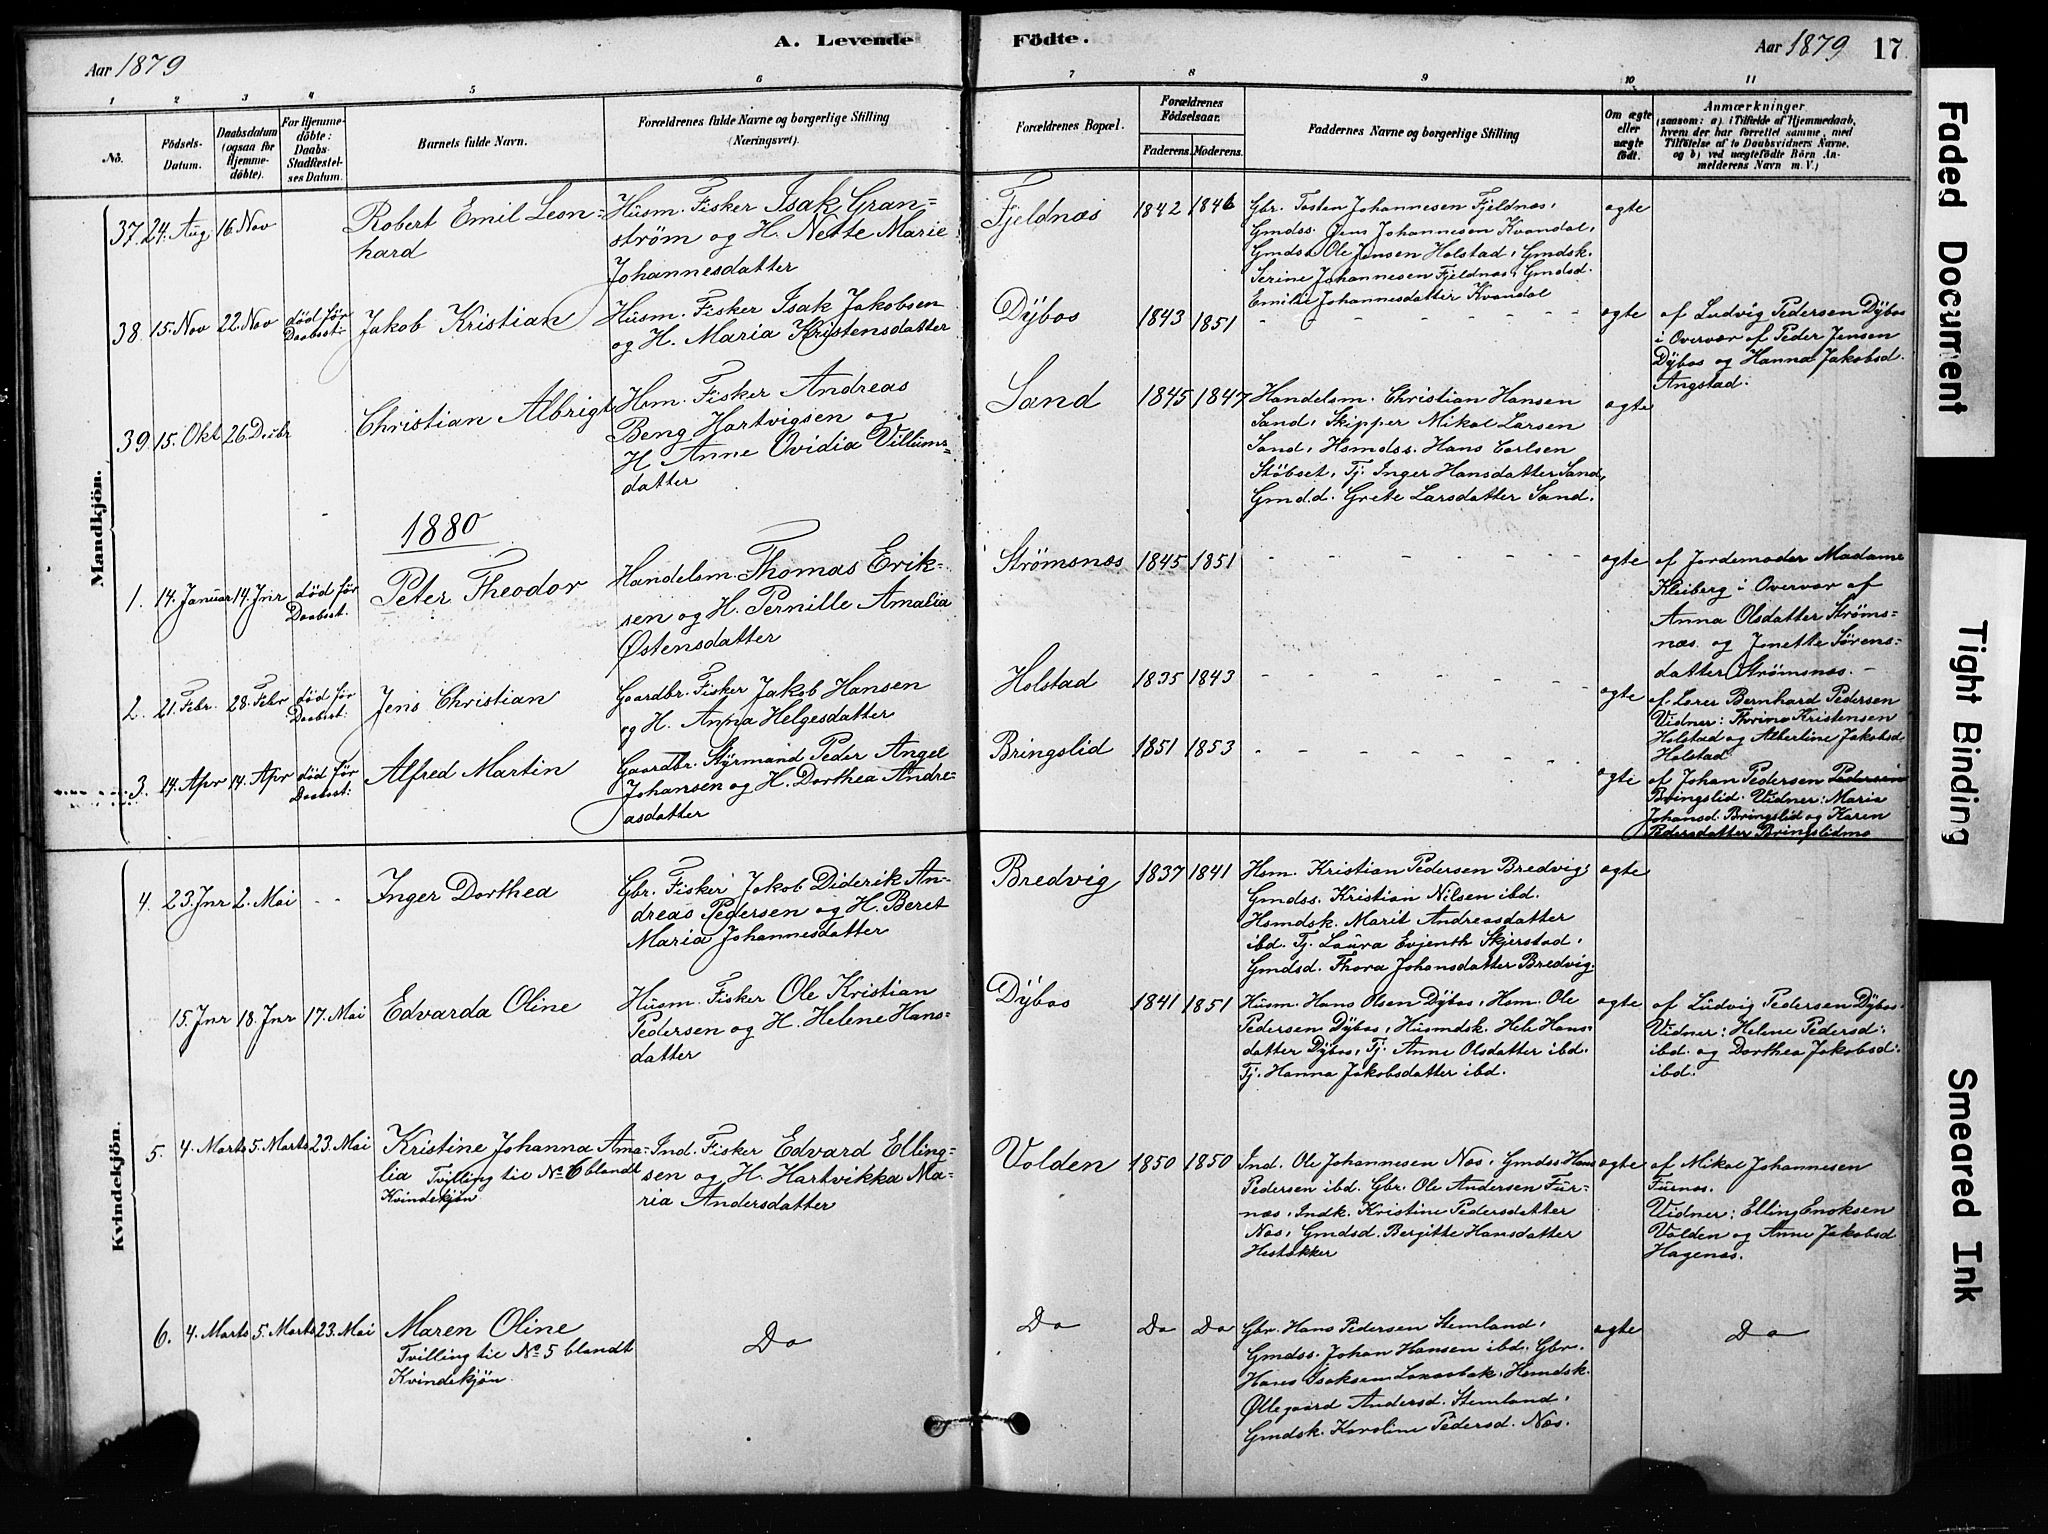 A. Levende Födte.
Aar 1879
Aar 1879
17
1 2 3 4 5 6 7 8 9 10 11
No.
Födsels-Datum.
Daabsdatum (ogsaa for Hjemme-döbte).
For Hjemme-döbte: Daabs-Stadfæstel-ses Datum.
Barnets fulde Navn.
Forældrenes fulde Navne og borgerlige Stilling (Næringsvei).
Forældrenes Bopæl.
Forældrenes Födselsaar.
Faderens. Moderens.
Faddernes Navne og borgerlige Stilling
Om ægte eller uægte födt.
Anmærkninger
(saasom: a) i Tilfælde af Hjemmedaab,
hvem der har forrettet samme, med
Tilföielse af to Daabsvidners Navne,
og b) ved uægtefödte Börn An-
melderens Navn m. V.)
Mandkjön.
37. 24. Aug. 16. Nov
Robert Emil Leon-
hard
Husm. Fisker Isak Gran-
ström og H. Nette Marie
Johannesdatter
Fjeldnæs 1842 1846
Gbr. Tosten Johannesen Fjeldnæs,
Gmdss. Jens Johannesen Kvandal,
Gmdss. Ole Jensen Holstad, Gmdsk.
Serine Johannesen Fjeldnæs, Gmdsd.
Emilie Johannesdatter Kvandal
ægte
38. 15. Nov 22. Nov død før Daabsst.
Jakob Kristian
Husm. Fisker Isak Jakobsen
og H. Maria Kristensdatter
Dybos 1843 1851 - - - - - - -
ægte
af Ludvig Pedersen Dybos
i Overvær af Peder Jensen
Dybos og Hanna Jakobsd.
Angstad.
39. 15. Okt 26. Decbr
Christian Albrigt
Hsm. Fisker Andreas
Beng Hartvigsen og
H. Anne Ovidia Villums-
datter
Sand 1845 1847
Handelsm. Christian Hansen
Sand, Skipper Mikal Larsen
Sand, Hsmdss. Hans Carlsen
Støbset, Tj. Inger Hansdatter Sand,
Gmd.d. Grete Larsdatter Sand.
ægte
1880
1. 14. Januar 14. Jnr død før Daabsst.
Peter Theodor
Handelsm. Thomas Erik-
sen og H. Pernille Amalia
Østensdatter
Strømsnæs 1845 1851 - - - - - -
ægte
af Jordemoder Madame
Kleiberg i Overvær af
Anna Olsdatter Strøms-
næs og Jonette Sørens-
datter Strømsnæs. -
2. 21. Febr. 28. Febr død før Daabsst.
Jens Christian
Gaardbr. Fisker Jakob Hansen
og H. Anna Helgesdatter
Holstad 1835 1843 - - - - - - -
ægte
af Lærer Bernhard Pedersen
Vidner: Thrine Kristensen
Holstad og Albertine Jakobsd.
Holstad
3. 14. Apr 14. Apr død før Daabsst.
Alfred Martin
Gaardbr. Styrmand Peder Angel
Johansen og H. Dorthea Andre-
asdatter
Bringslid 1851 1853 - - - - - - -
ægte
af Johan Pedersen Pedersen
Bringslid. Vidner: Maria
Johansd. Bringslid og Karen
Pedersdatter Bringslidmo
Kvindekjön.
4. 23. Jnr 2. Mai - -
Inger Dorthea
Gbr. Fisker Jakob Diderik An-
dreas Pedersen og H. Beret
Maria Johannesdatter
Bredvig 1837 1841
Hsm. Kristian Pedersen Bredvig,
Gmdss. Kristian Nilsen ibd.
Hsmdsk. Marit Andreasdatter
ibd. Tj. Laura Evjenth Skjerstad,
Gmdsd. Thora Johansdatter Bredvig.
ægte
15. Jnr 18. Jnr 17. Mai
Edvarda Oline
Husm. Fisker Ole Kristian
Pedersen og H. Helene Hans-
datter
Dybos 1841 1851
Husm. Hans Olsen Dybos, Hsm. Ole
Pedersen Dybos, Husmdsk. Hele Hans-
datter Dybos, Tj. Anne Olsdatter ibd.
Tj. Hanna Jakobsdatter ibd.
ægte
af Ludvig Pedersen Dybos.
Vidner: Helene Pedersd.
ibd. og Dorthea Jakobsd.
ibd.
5. 4. Marts 5. Marts 23. Mai
Kristine Johanna Ama-
lia Tvilling til No 6 blandt
Kvindekjøn
Ind. Fisker Edvard Elling-
sen og H. Hartvikka Ma-
ria Andersdatter
Volden 1850 1850
Ind. Ole Johannesen Næs, Gmdss Hans
Pedersen ibd. Gbr. Ole Andersen Fur-
næs, Indk. Kristine Pedersdatter
Næs, Gmdsd. Bergitte Hansdatter
Hestakker
ægte
af Mikal Johannesen
Furnæs.
Vidner: Elling Enoksen
Volden og Anne Jakobsd
Hagenæs.
6. 4. Marts 5. Marts 23. Mai
Maren Oline
Tvilling til No 5 blandt
Kvindekjøn.
Do
Do Do Do
Gbr. Hans Pedersen Stemland,
Gmdss. Johan Hansen ibd. Gbr.
Hans Isaksen Laxarbak, Hsmdsk.
Øllegaard Andersd. Stemland,
Gmdsk. Karoline Pedersd. Næs.
ægte
Do
Faded Document
Tight Binding
Smeared Ink